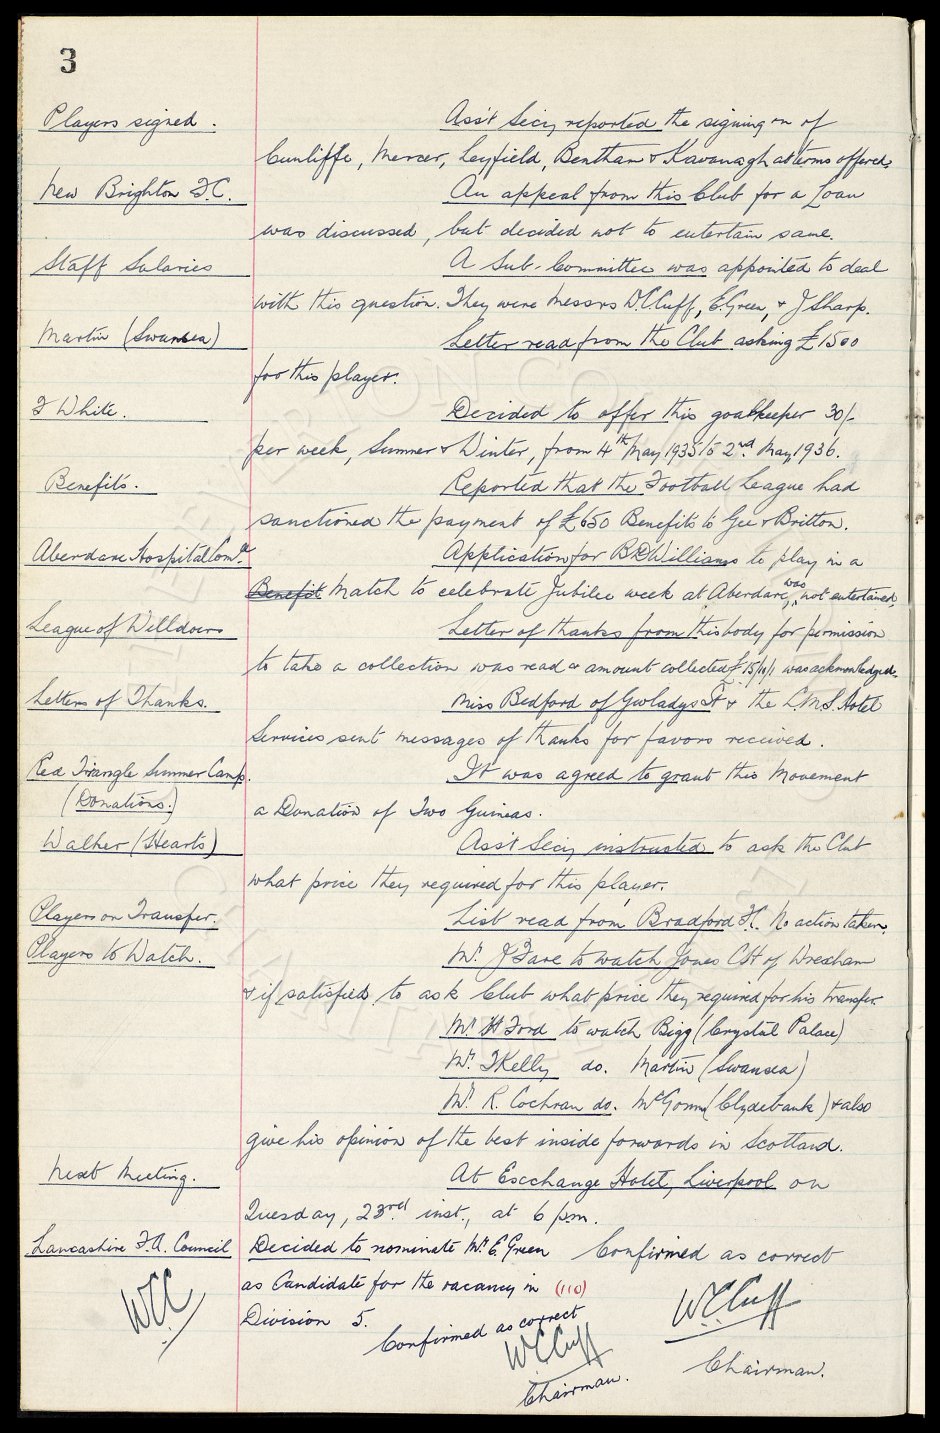 3
Players signed. Ass't Secy reported the signing on of
Cunliffe, Mercer, Leyfield, Bentham & Kavanagh at terms offered.
New Brighton F.C. An appeal from this Club for a Loan
was discussed, but decided not to entertain same.
Staff Salaries A Sub-Committee was appointed to deal
with this question. They were Messrs W.C. Cuff, E. Green, & J Sharp.
Martin (Swansea) Letter read from the Club asking £1500
for this player.
F White. Decided to offer this goalkeeper 30/-
per week, Summer & Winter, from 4th May 1935 to 2nd May 1936.
Benefits. Reported that the Football League had
sanctioned the payment of £650 Benefits to Gee & Britton.
Aberdare Hospital Comee. Application for B.D. Williams to play in a
Benefit Match to celebrate Jubilee week at Aberdare, was not entertained.
League of Welldoers Letter of thanks from this body for permission
to take a collection was read & amount collected £15/10/1 was acknowledged.
Letters of Thanks. Miss Bedford of Gwladys St & the LMS Hotel
Services sent messages of thanks for favors received.
Red Triangle Summer Camp. It was agreed to grant this Movement
(Donations.) a Donation of Two Guineas.
Walker (Hearts) Ass't Secy instructed to ask the Club
what price they required for this player.
Players on Transfer. List read from Bradford F.C. No action taken.
Players to Watch. Mr. J Fare to watch Jones CH of Wrexham
& if satisfied, to ask Club what price they required for his transfer.
Mr H Ford to watch Bigg (Crystal Palace)
Mr. T Kelly do. Martin (Swansea)
Mr. R. Cochran do. (Clydebank) & also
give his opinion of the best inside forwards in Scotland.
Next Meeting. At Excchange Hotel, Liverpool on
Tuesday, 23rd. inst., at 6 p.m.
Lancashire F.A. Council Decided to nominate Mr. E. Green
as Candidate for the vacancy in (110)
Division 5.
WCC
Confirmed as correct
W.C. Cuff
Chairman.
Confirmed as correct
W.C. Cuff
Chairman.